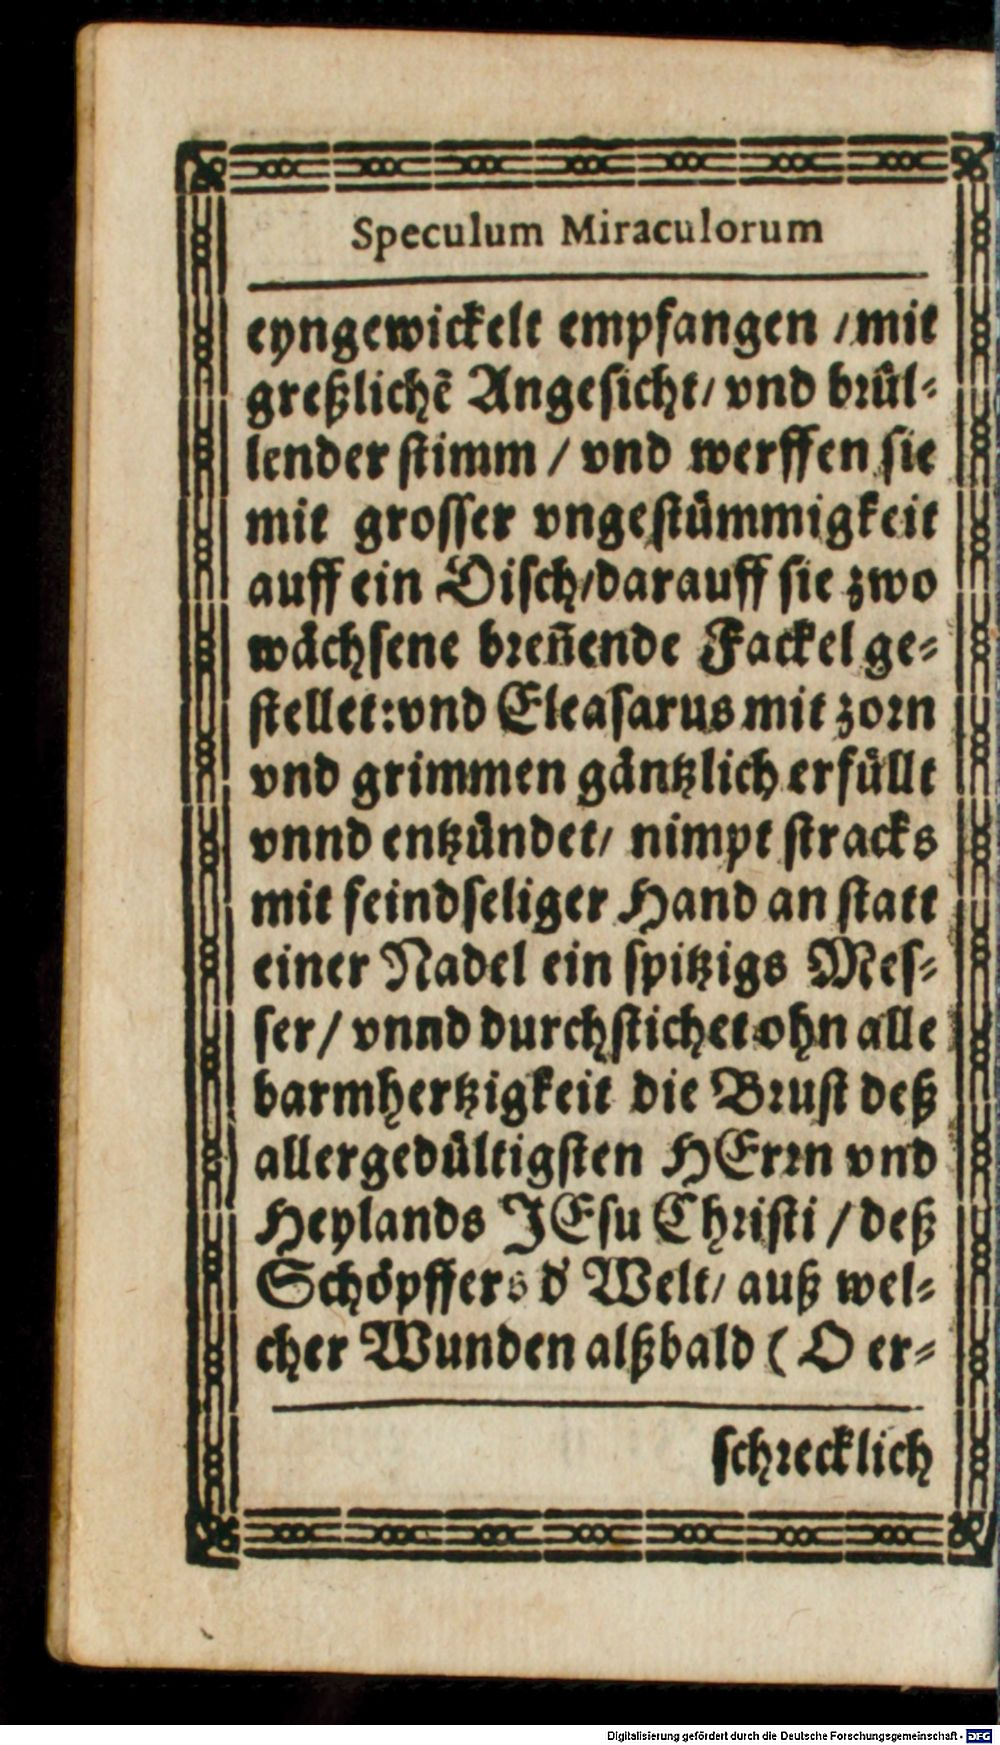 Speculum Miraculorum
eyngewickelt empfangen / mit
greßlichẽ Angesicht / vnd brül-
lender stimm / vnd werffen sie
mit grosser vngestümmigkeit
auff ein Disch / darauff sie zwo
wächsene breñende Fackel ge-
stellet: vnd Eleasarus mit zorn
vnd grimmen gäntzlich erfüllt
vnnd entzündet / nimpt stracks
mit feindseliger Hand an statt
einer Nadel ein spitzigs Mes-
ser / vnnd durchstichet ohn alle
barmhertzigkeit die Brust deß
allergedültigsten HErrn vnd
Heylands JEsu Christi / deß
Schöpffers d' Welt / auß wel-
cher Wunden alßbald ( O er-
schrecklich
Digitalisierung gefördert durch die Deutsche Forschungsgemeinschaft - DFG